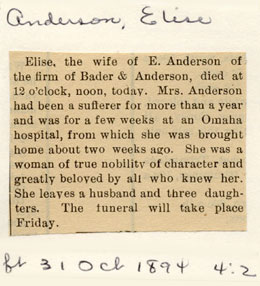 Anderson, Elise
Elise, the wife of E. Anderson of
the firm of Bader & Anderson, died at
12 o'clock, noon, today. Mrs. Anderson
had been a sufferer for more than a year
and was for a few weeks at an Omaha
hospital, from which she was brought
home about two weeks ago. She was a
woman of true nobility of character and
greatly beloved by all who knew her.
She leaves a husband and three daugh-
ters. The funeral will take place
Friday.
ft 31 Oct 1894 4:2